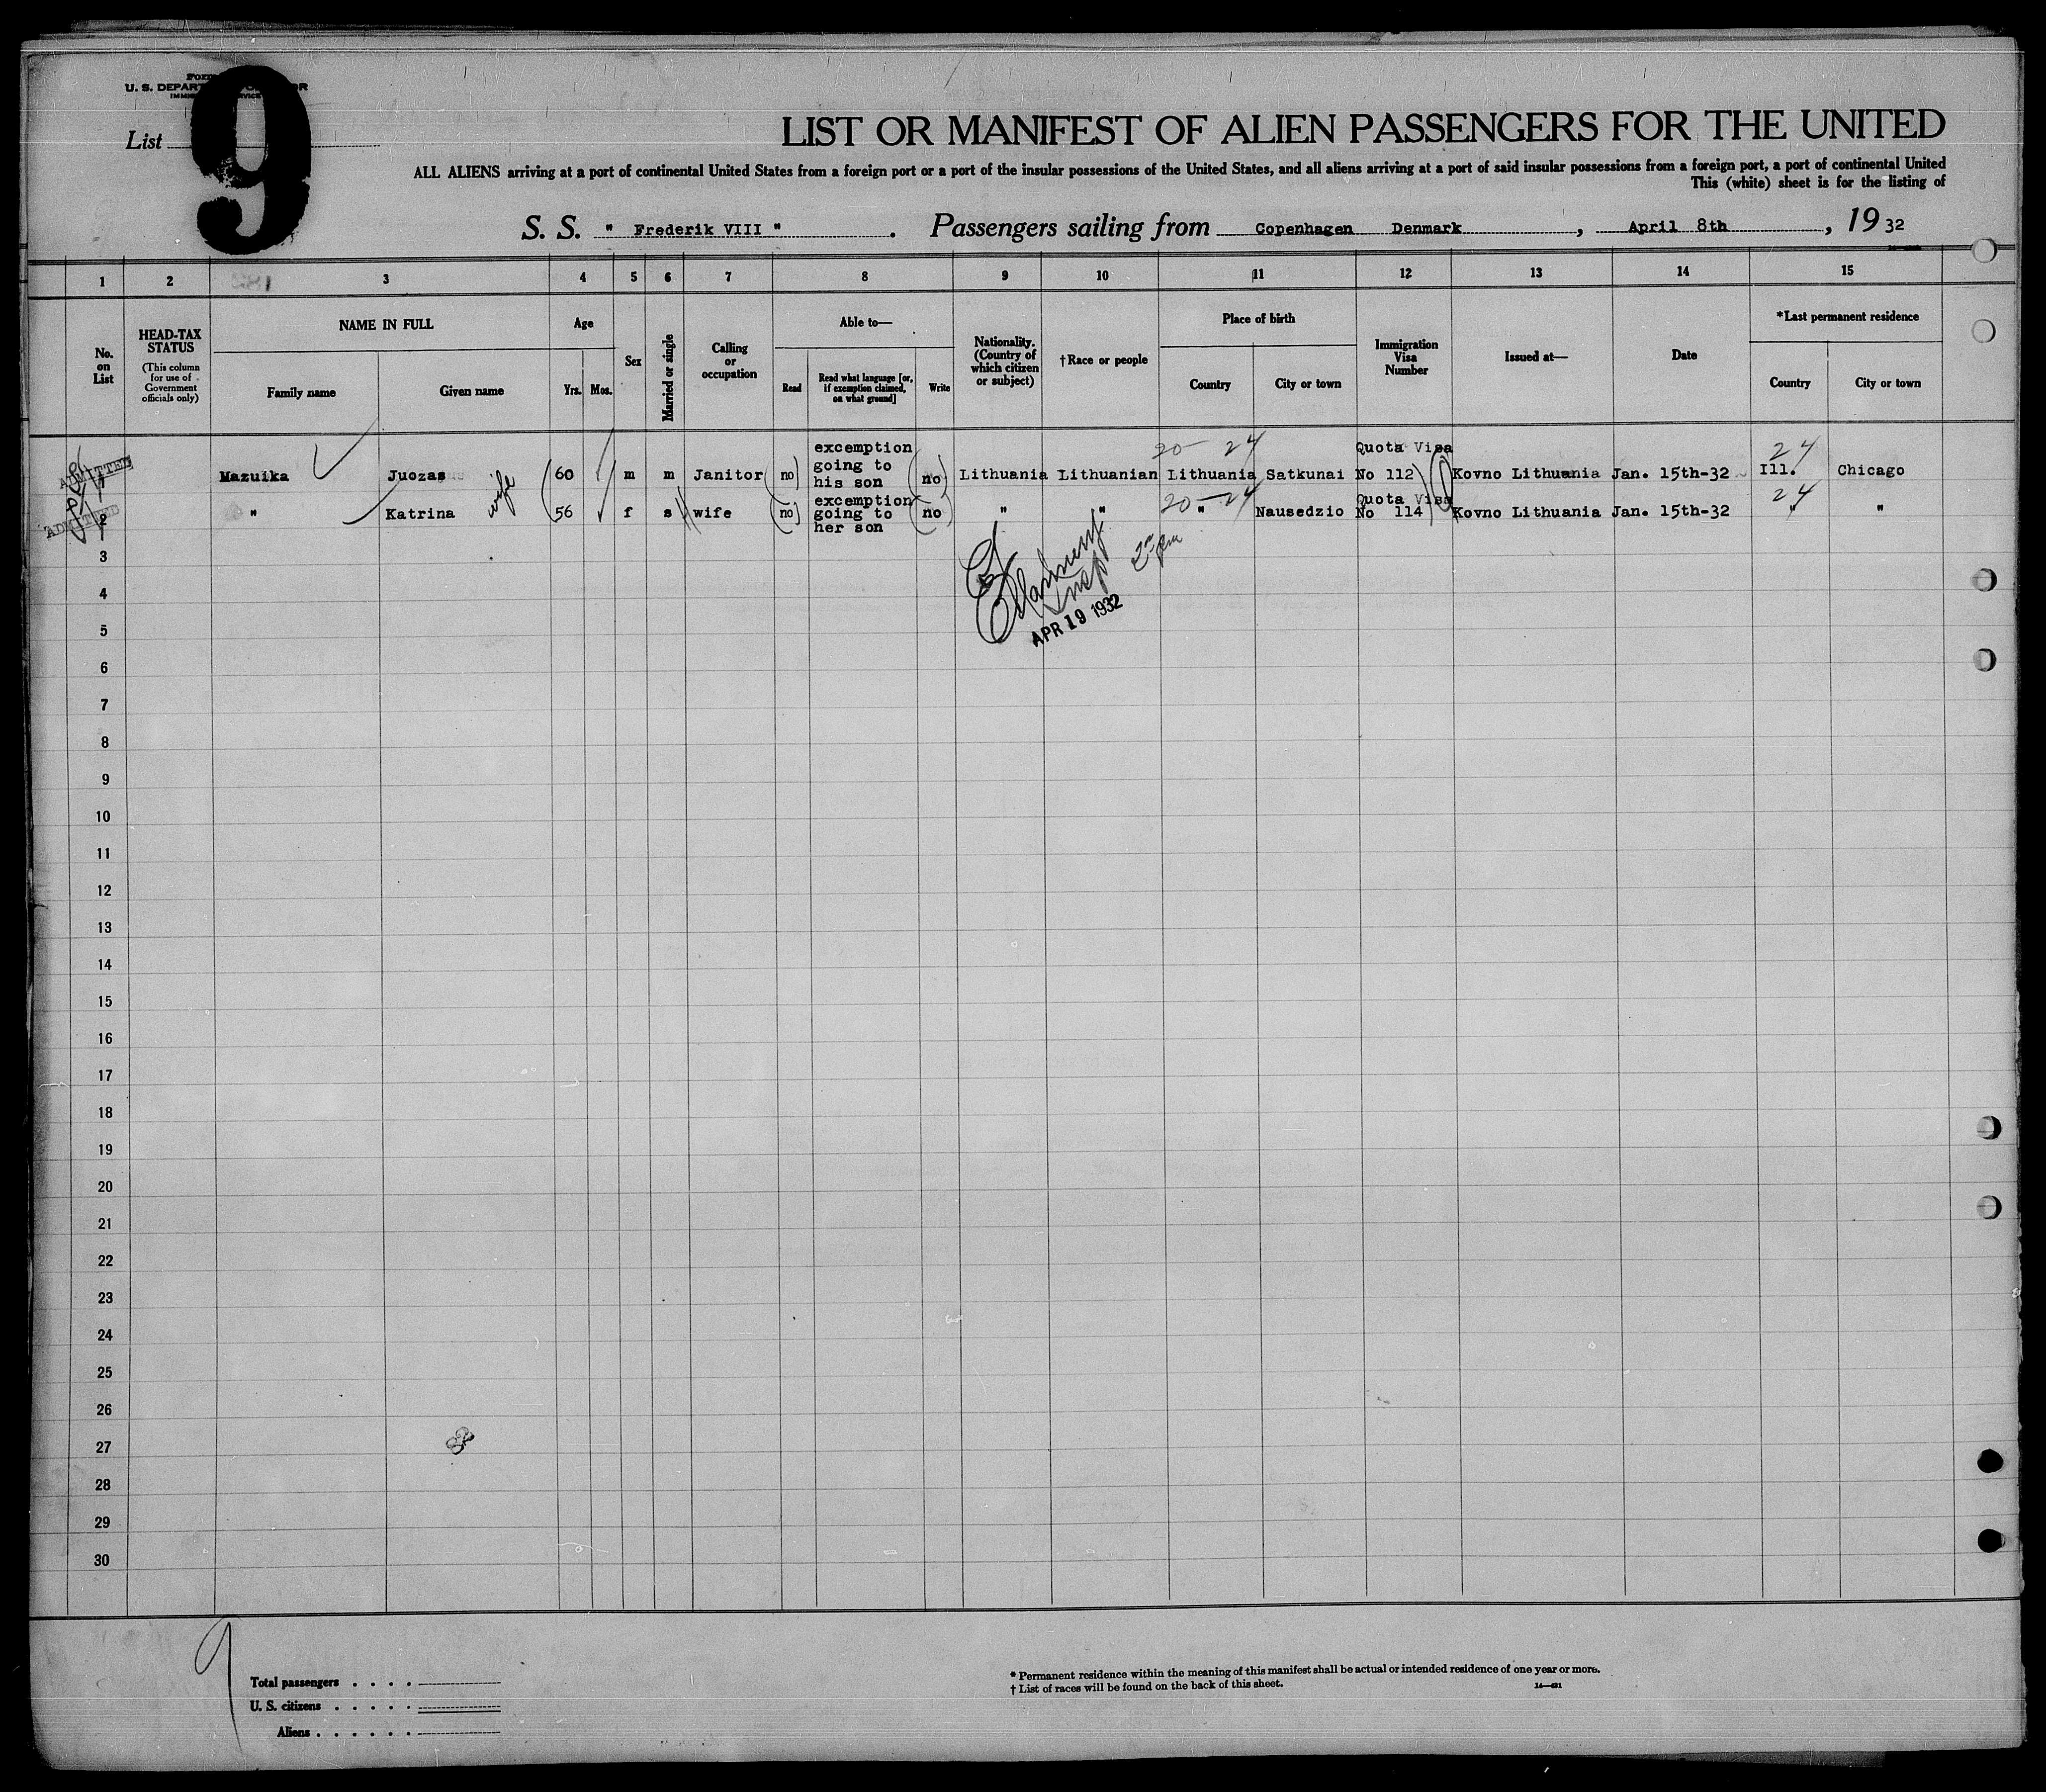 9
U. S. DEPAR
List
LIST OR MANIFEST OF ALIEN PASSENGERS FOR THE UNITED
ALL ALIENS arriving at a port of continental United States from a foreign port or a port of the insular possessions of the United States, and all aliens arriving at a port of said insular possessions from a foreign port, a port of continental United
This (white) sheet is for the listing of
S. S. " Frederik VIII " . Passengers sailing from Copenhagen Denmark , April 8th , 19 32
1 2 3 4 5 6 7 8 9 10 11 12 13 14 15
No. on List
HEAD-TAX STATUS
(This column for use of Government officials only)
NAME IN FULL
Family name Given name
Age
Yrs. Mos.
Sex
Married or single
Calling or occupation
Able to—
Read
Read what language [or, if exemption claimed, on what ground]
Write
Nationality. (Country of which citizen or subject)
†Race or people
Place of birth
Country City or town
Immigration Visa Number
Issued at—
Date
*Last permanent residence
Country City or town
20 — 24 24
ADMITTED Mazuika Juozas 60 m m Janitor (no) excemption going to his son (no) Lithuania Lithuanian Lithuania Satkunai Quota Visa No 112 Kovno Lithuania Jan. 15th-32 Ill. Chicago
wife
20 — 24 24
ADMITTED 2 " Katrina 56 f s wife (no) excemption going to her son (no) " " " Nausedzio Quota Visa No 114 Kovno Lithuania Jan. 15th-32 " "
Insp
APR 19 1932
3
4
5
6
7
8
9
10
11
12
13
14
15
16
17
18
19
20
21
22
23
24
25
26
27
28
29
30
9
Total passengers . . . .
U. S. citizens . . . . .
Aliens . . . . . .
* Permanent residence within the meaning of this manifest shall be actual or intended residence of one year or more.
† List of races will be found on the back of this sheet.